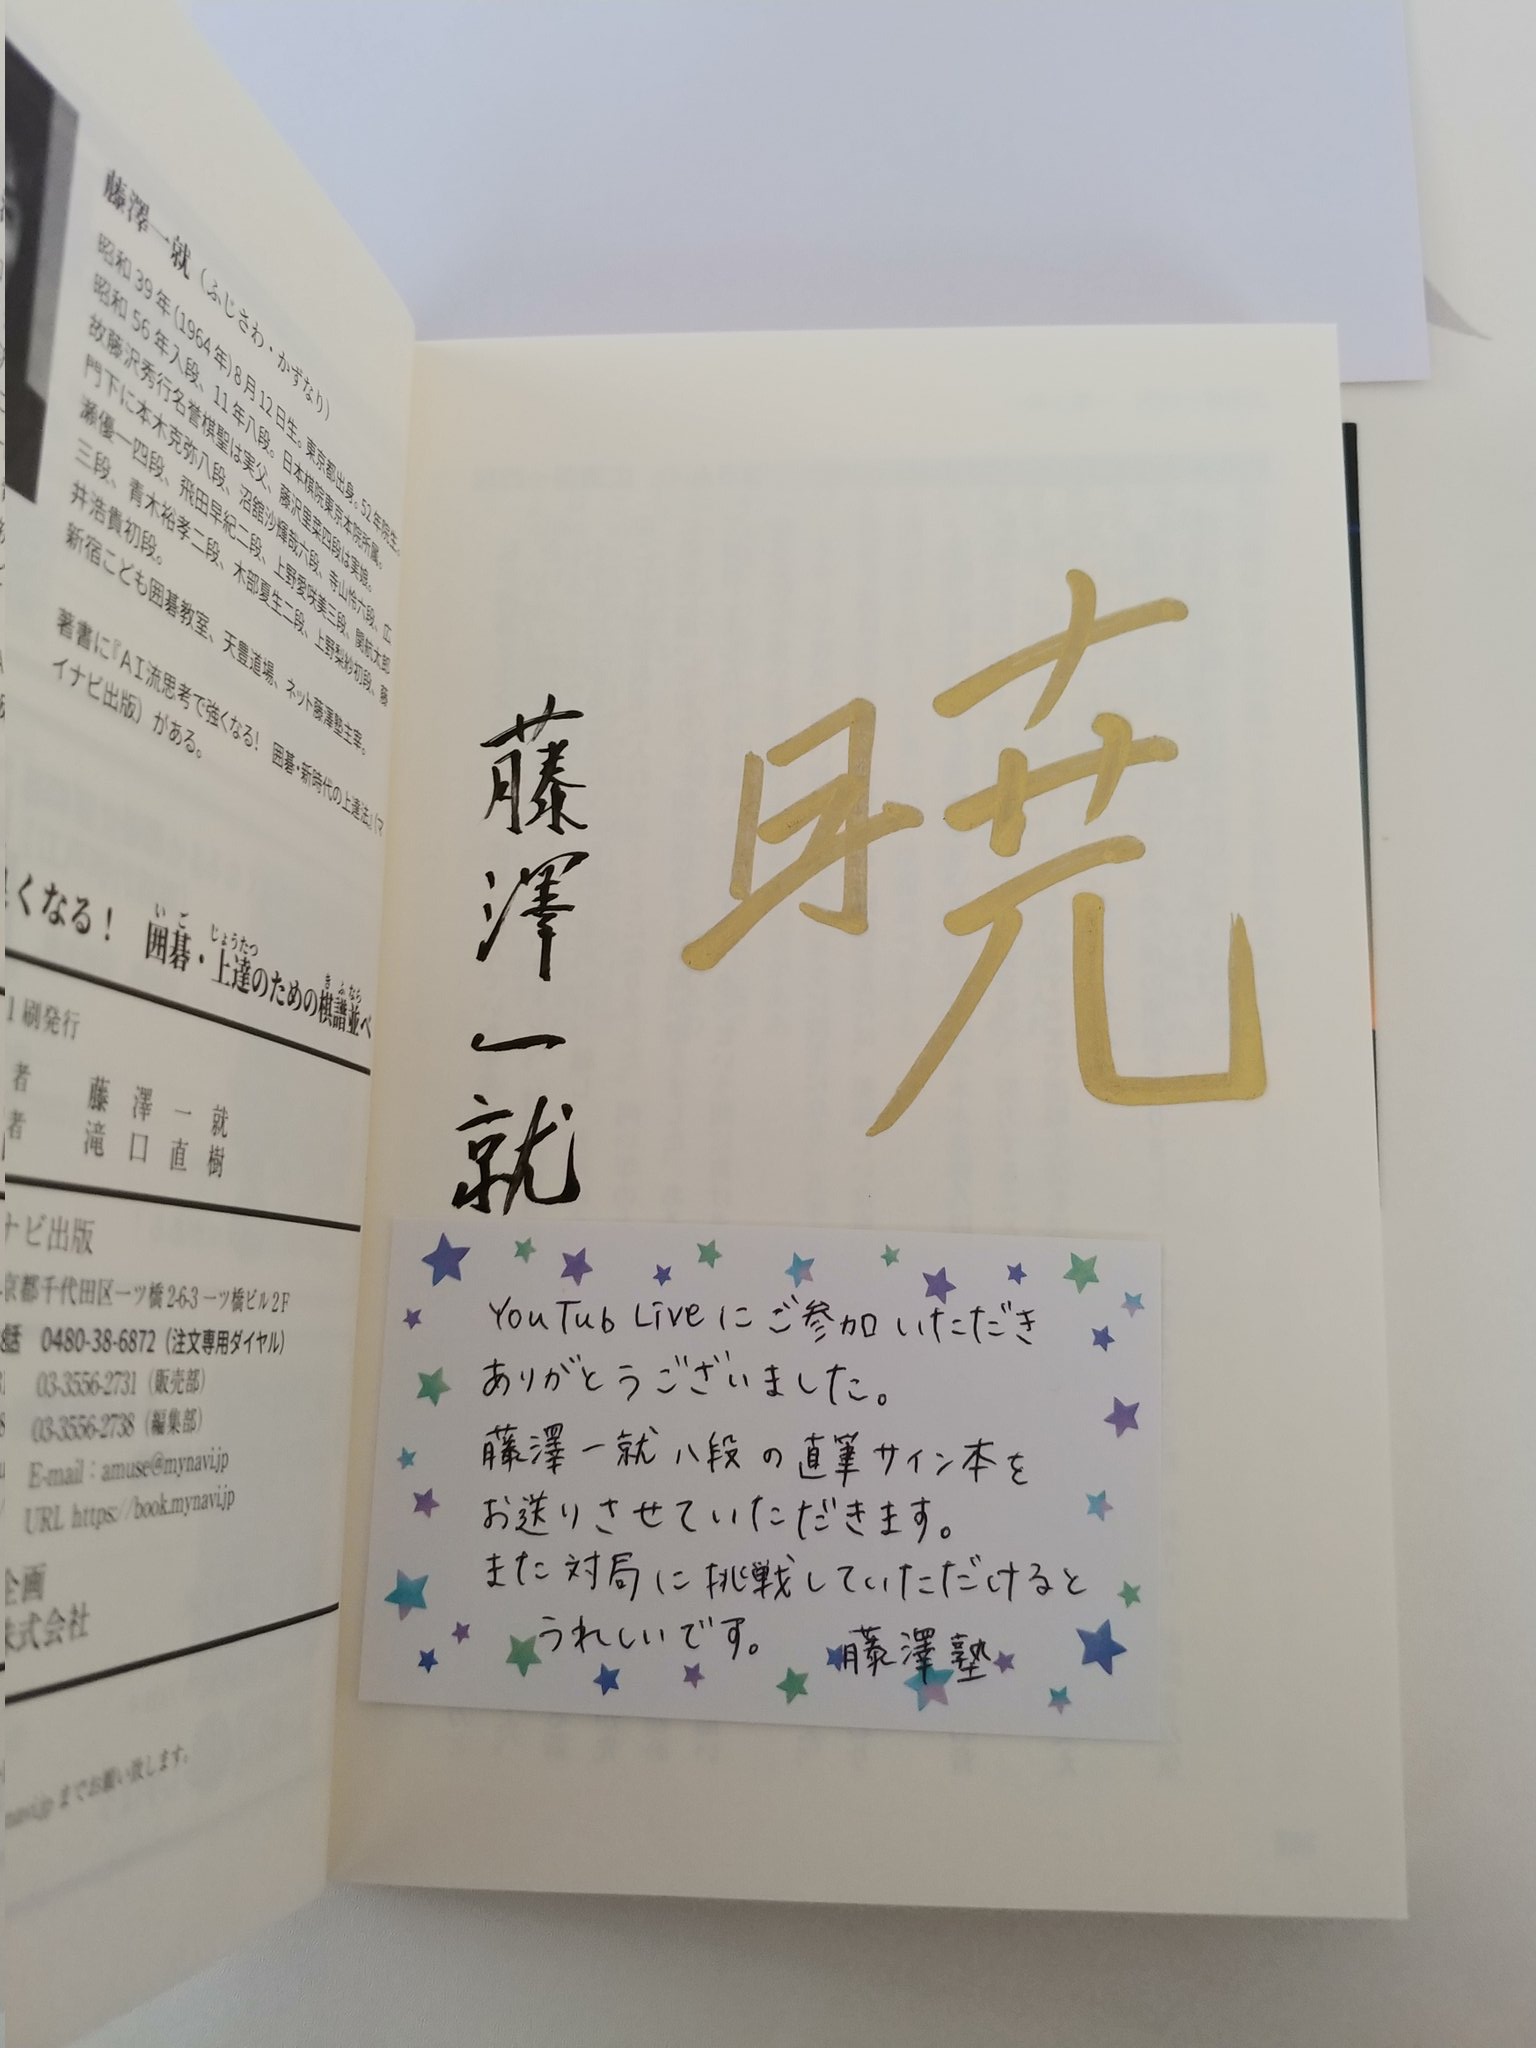 藤澤一就（ふじさわ・かずなり）
昭和39年（1964年）8月12日生。東京都出身。52年院生。
昭和56年入段、11年八段。日本棋院東京本院所属。
故藤沢秀行名誉棋聖は実父、藤沢里菜四段は実娘。
門下に本木克弥八段、沼舘沙輝哉六段、寺山怜六段、広
瀬優一四段、飛田早紀二段、上野愛咲美三段、関航太郎
三段、青木裕孝二段、木部夏生二段、上野梨紗初段、藤
井浩貴初段。
新宿こども囲碁教室、天豊道場、ネット藤澤塾主宰。
著書に『AI流思考で強くなる！ 囲碁・新時代の上達法』（マ
イナビ出版）がある。
くなる！ 囲碁・上達のための棋譜並べ
いご じょうたつ きふなら
1刷発行
者 藤澤一就
者 滝口直樹
ナビ出版
京都千代田区一ツ橋2-6-3 一ツ橋ビル2F
話 0480-38-6872（注文専用ダイヤル）
03-3556-2731（販売部）
03-3556-2738（編集部）
E-mail：amuse@mynavi.jp
URL https://book.mynavi.jp
企画
株式会社
navi.jpまでお願い致します。
暁
藤澤一就
YouTub Liveにご参加いただき
ありがとうございました。
藤澤一就八段の直筆サイン本を
お送りさせていただきます。
また対局に挑戦していただけると
うれしいです。 藤澤塾